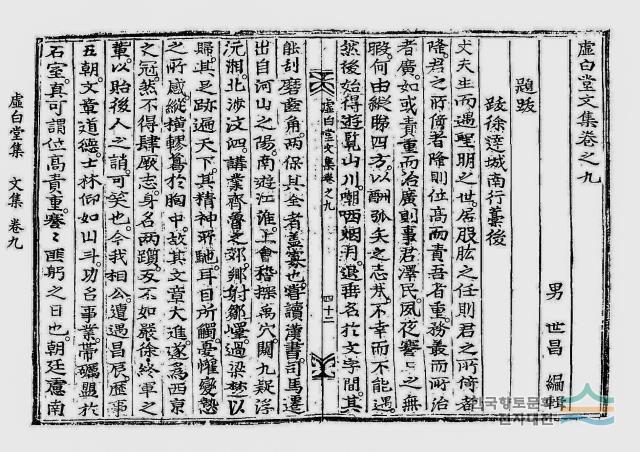 虛白堂文集卷之九
男 世昌 編輯
題跋
跋徐達城南行藁後
丈夫生而遇聖明之世居股肱之任則君之所倚者
隆君之所倚者隆則位高而責吾者重務叢而所治
者廣如或責重而治廣則事君澤民夙夜謇〻之無
暇何由縱 四方以酬弧矢之志哉不幸而不能遇
然後始得遊覽山川嘲哂烟月退垂名於文字間其
虛白堂文集卷之九 四十二
能刮磨圭角兩保其全者蓋寡也嘗讀漢書司馬遷
出自河山之陽南遊江淮上會稽探禹穴闚九疑浮
沅湘北涉汶泗講業齊魯之郊鄉射鄒嶧過梁楚以
歸其足跡遍天下其精神所馳耳目所觸憂懽變態
之所感縱橫轇 於胸中故其文章大進遂爲西京
之冠然不得肆厥志身名兩隳反不如嚴徐終軍之
輩以貽後人之誚可笑也今我相公遭遇昌辰歷事
五朝文章道德士林仰如山斗功名事業帶礪盟於
石室真可謂位高責重謇〻匪躬之日也朝廷慮南
虛白堂集 文集 卷九
한국향토문화
전자대전